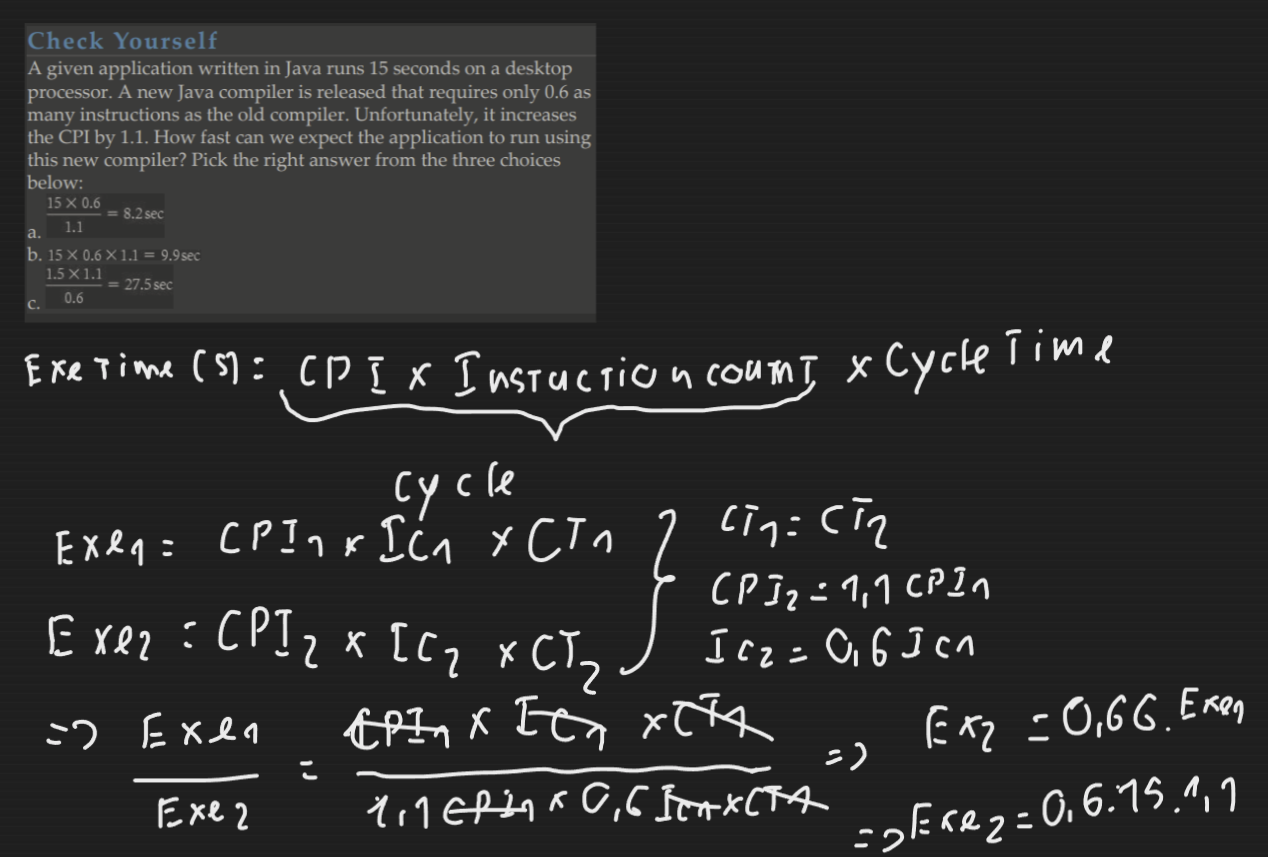 Check Yourself
A given application written in Java runs 15 seconds on a desktop
processor. A new Java compiler is released that requires only 0.6 as
many instructions as the old compiler. Unfortunately, it increases
the CPI by 1.1. How fast can we expect the application to run using
this new compiler? Pick the right answer from the three choices
below:
a. (15 × 0.6) / 1.1 = 8.2 sec
b. 15 × 0.6 × 1.1 = 9.9 sec
c. (1.5 × 1.1) / 0.6 = 27.5 sec
Exe Time (s) = CPI x Instuction count x Cycle Time
Cycle
Exe1 = CPI1 x IC1 x CT1
CT1 = CT2
CPI2 = 1,1 CPI1
Exe2 = CPI2 x IC2 x CT2
Ic2 = 0,6 Ic1
=> Exe1 / Exe2 = (CPI1 x IC1 x CT1) / (1,1 CPI1 x 0,6 IC1 x CT1)
=> Ex2 = 0,66 . Exe1
=> Exe2 = 0,6.15.1,1